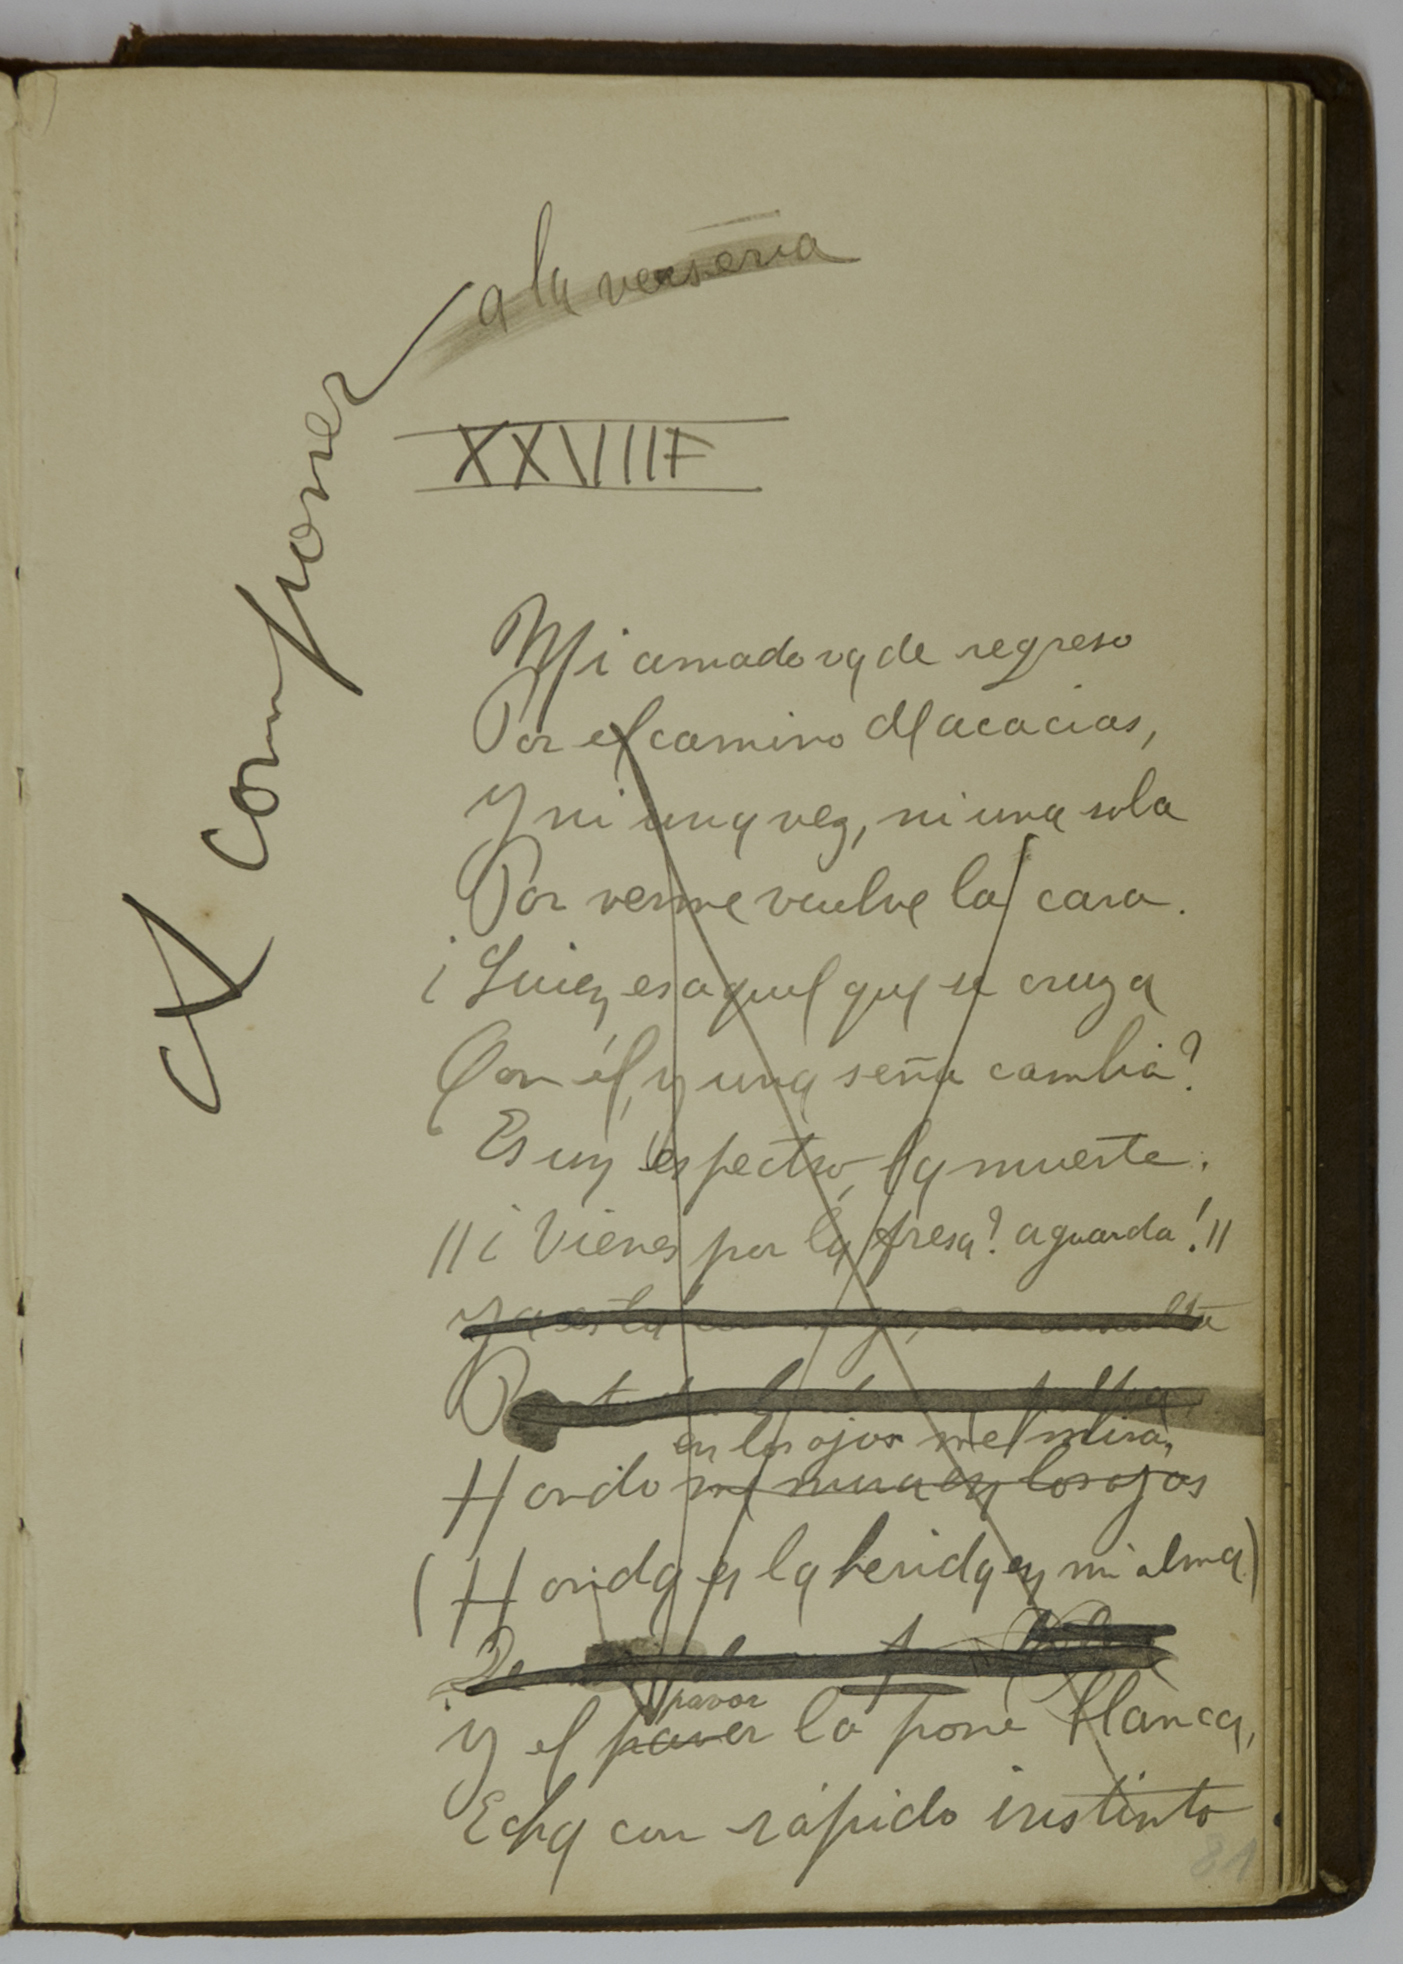 A componer
a la
XXVIII
Mi amado va de regreso
Por el camino de acacias,
Y ni una vez, ni una sola
Por verme vuelve la cara.
¿Quien es aquel que se cruza
Con él, y una seña cambia?
Es un espectro, la muerte.
¿Vienes por la presa? aguarda!
Ya está
en los ojos me mira,
Hondo me mira en los ojos
(Honda es la herida en mi alma)
pavor
Y el paver la pone blanca,
Echa con rápido instinto
81